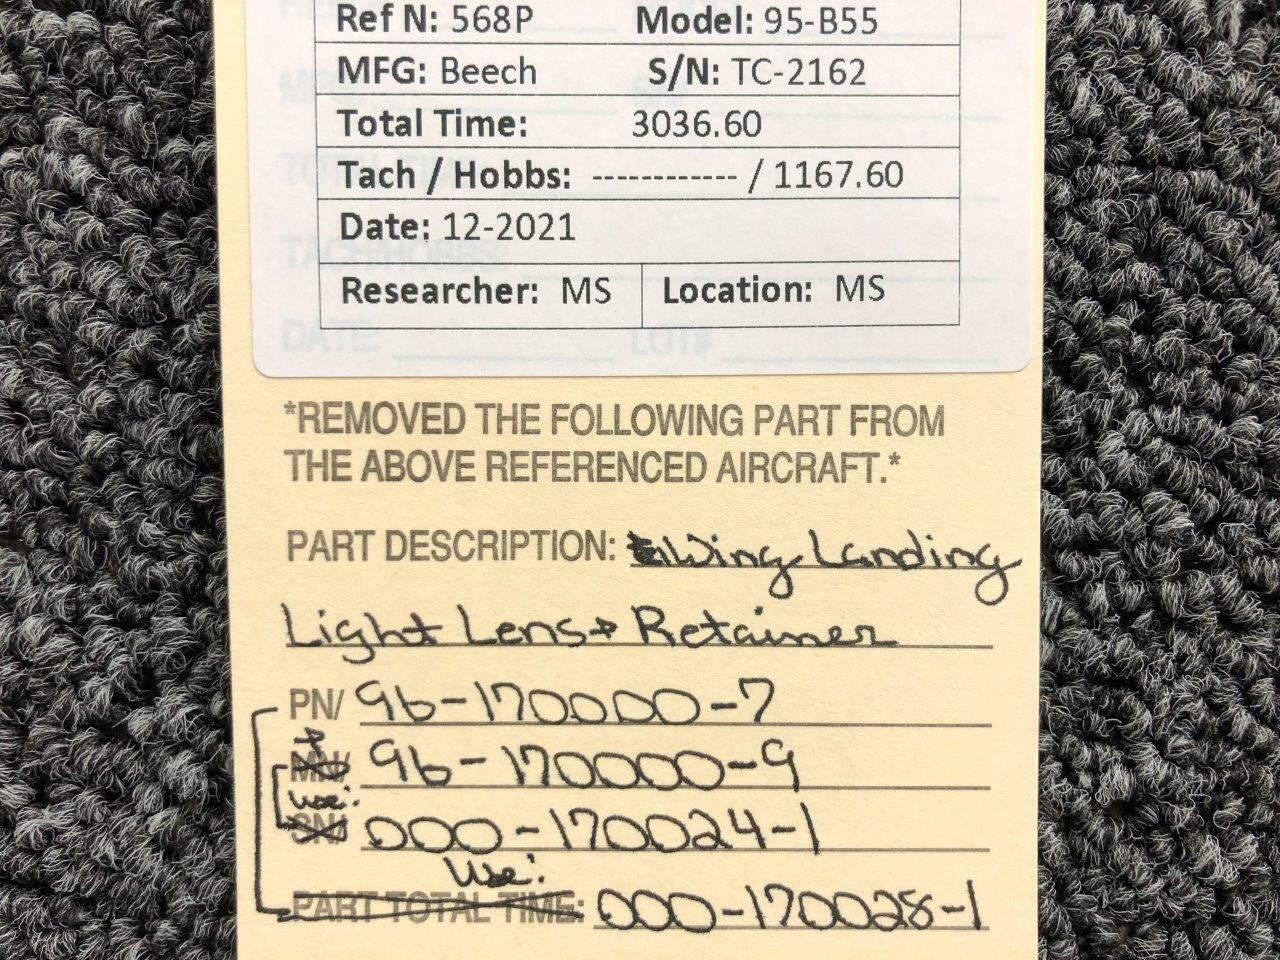 Ref N: 568P Model: 95-B55
MFG: Beech S/N: TC-2162
Total Time: 3036.60
Tach / Hobbs: ------------ / 1167.60
Date: 12-2021
Researcher: MS Location: MS
TACH/HOBBS:
DATE: LOT#
*REMOVED THE FOLLOWING PART FROM
THE ABOVE REFERENCED AIRCRAFT.*
PART DESCRIPTION: Wing Landing
Light Lens + Retainer
PN/ 96-170000-7
+
MN/ 96-170000-9
use:
SN/ 000-170024-1
use:
PART TOTAL TIME: 000-170028-1